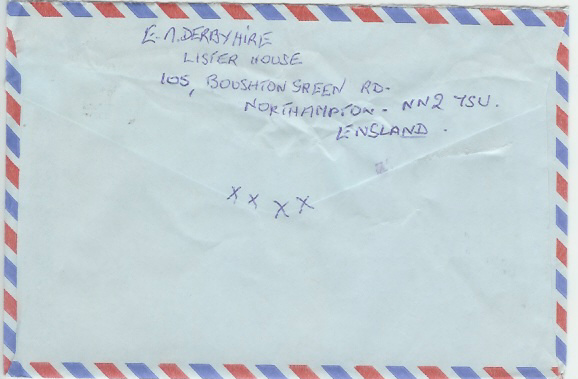 E. M. DERBYHIRE
LISTER HOUSE
105, BOUGHTON GREEN RD.
NORTHAMPTON. NN2 7SU.
ENGLAND.
X X X X